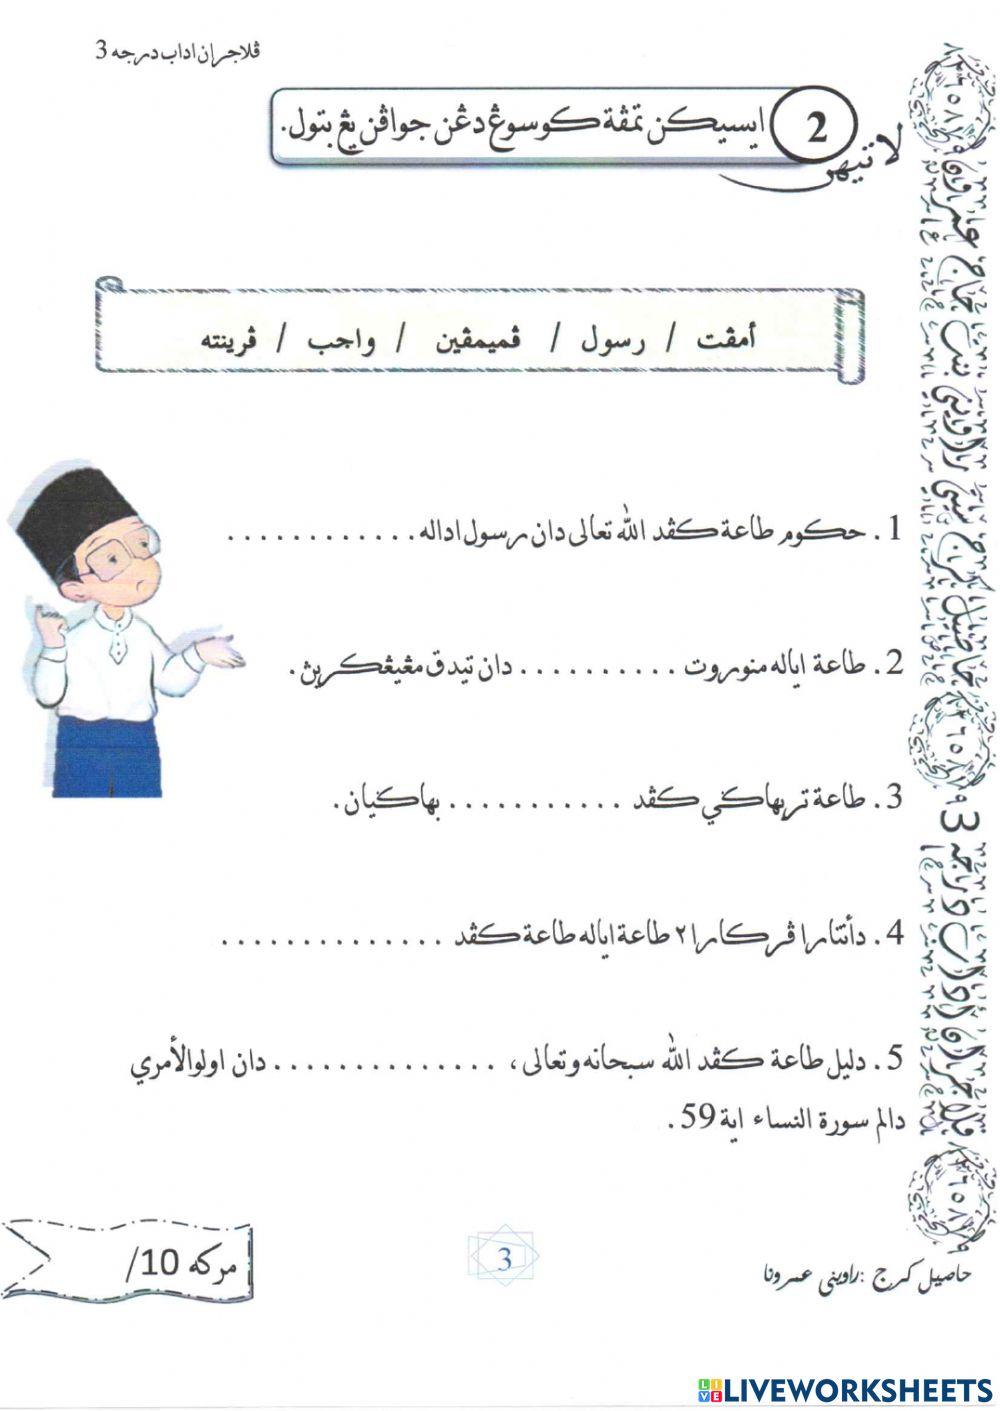 ڤلاجران اداب درجه 3
لاتيهن
2
ايسيكن تمڤة كوسوڠ دڠن جواڤن يڠ بتول.
أمڤت / رسول / ڤميمڤين / واجب / ڤرينته
1. حكوم طاعة كڤد الله تعالى دان رسول اداله............
2. طاعة اياله منوروت .......... دان تيدق مڠيڠكرين.
3. طاعة تربهاكي كڤد ........... بهاكيان.
4. دأنتارا ڤركارا ٢ طاعة اياله طاعة كڤد ..............
5. دليل طاعة كڤد الله سبحانه وتعالى، .............. دان اولوالأمري
دالم سورة النساء اية 59.
مركه 10/
3
حاصيل كرج :راويني عمرونا
LIVEWORKSHEETS